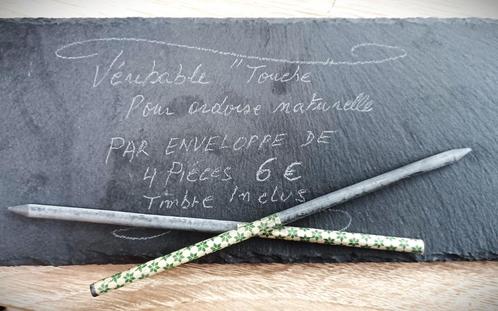 Véritable "Touche
Pour ardoise naturelle
PAR ENVELOPPE DE
4 Pièces 6 €
Timbre Inclus